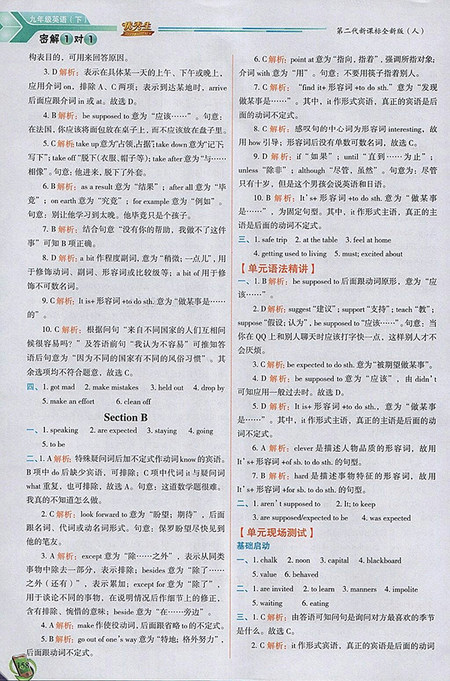 九年级英语（下）
密解1对1
黄先生
第二代新课标全新版（人）
构表目的，可用来回答原因。
3. D 解析：表示在具体某一天的上午、下午或晚上，
应用介词 on，排除 A、C 两项；表示到达某地时，arrive
后面应跟介词 in 或 at。故选 D。
4. B 解析：be supposed to 意为“应该……”。句意：
在法国，你应该将面包放在桌子上，而不应该放在盘子里。
5. C 解析 take up 意为“占领,占据”；take down 意为“记下,
写下”；take off “脱下(衣服,帽子等)；take after 意为“与……
相像”。句意：他进来，脱下了外套。
6. B 解析：as a result 意为“结果”；after all 意为“毕
竟”；on earth 意为“究竟”；for example 意为“例如”。
句意：别让他学习到太晚。他毕竟只是个孩子。
7. B 解析：结合句意“没有你的帮助，我做不了这件
事”可知 B 项正确。
8. B 解析：a bit 作程度副词，意为“稍微；一点儿”，用
于修饰动词、副词、形容词或比较级等；a bit of 用于修
饰不可数名词。
9. C 解析：It is+ 形容词 +to do sth. 意为“做某事是……
的”。
10. C 解析：根据问句“来自不同国家的人们互相问
候很容易吗？”及答语前句“我认为不容易”可推知答
语后句意为“因为不同的国家有不同的风俗习惯”。其
余选项均不符合题意，故选 C。
四、1. got mad 2. make mistakes 3. held out 4. drop by
5. make an effort 6. clean off
Section B
一、1. speaking 2. are expected 3. staying 4. going
5. to be
二、1. A 解析：特殊疑问词后加不定式作动词 know 的宾语。
B 项中 do 后缺少宾语，可排除；C 项中代词 it 与疑问词
what 重复，也可排除，故选 A。句意：这道数学题很难。
我真的不知道怎么做。
2. C 解析：look forward to 意为“盼望；期待”，后面
跟名词、代词或动名词形式。句意：保罗盼望尽快见到
他的笔友。
3. A 解析：except 意为“除……之外”，表示从同类
事物中除去一部分，表示排除；besides 意为“除了……
之外（还有）”，表示累加；except for 意为“除了”，
用于谈论不同的事物，在说明情况后作细节上的修正，
含有排除、惋惜的意味；beside 意为“在……旁边”。
4. A 解析：make 作使役动词，后面跟省略 to 的不定式。
5. B 解析：go out of one's way 意为“特地；格外努力”，
后面跟动词不定式。
6. C 解析：point at 意为“指向，指着”，强调所指对象；
介词 with 意为“用”。句意：不要用筷子指着别人。
7. C 解析：“find it+ 形容词 +to do sth.”意为“发现
做某事是……”。其中，it 作形式宾语，真正的宾语是后
面的动词不定式。
8. C 解析：感叹句的中心词为形容词 interesting，故
用 how 引导；形容词后没有单数可数名词，故选 C。
9. D 解析：if “如果”；until “直到……为止”；
unless “除非”；although “尽管，虽然”。句意为：尽管
只有十岁，但是这个男孩会说英语和日语。
10. B 解析：It's+ 形容词 +to do sth. 意为“做某事
是……”，为固定句型。其中，it 作形式主语，真正的主
语是后面的动词不定式。
三、1. safe trip 2. at the table 3. feel at home
4. getting used to living 5. must; excited about
【单元语法精讲】
一、1. B 解析：be supposed to 后面跟动词原形，意为“应
该……”。
2. D 解析：suggest “建议”；support “支持”；teach “教”；
suppose “假设；认为”，be supposed to “应该……”。句意：当
你在 QQ 上和别人聊天时应该打字快一点，这样别人才不
会厌烦。
3. C 解析：be expected to do sth. 意为“被期望做某事”。
4. D 解析：be supposed to 意为“应该”，由 didn't
可知应用一般过去时。故选 D。
5. D 解析：It is+ 形容词 +to do sth.，意为“做某事
是……”。其中，it 作形式主语，真正的主语是后面的动
词不定式。
6. A 解析：clever 是描述人物品质的形容词，故用
It's+ 形容词 +of sb. to do sth. 的句型。
7. B 解析：hard 是描述事物特征的形容词，故用
It's+ 形容词 +for sb. to do sth. 的句型。
二、1. aren't supposed to 2. It; to keep
3. are supposed/expected to be 4. was expected
【单元现场测试】
基础启动
一、1. chalk 2. noon 3. capital 4. blackboard
5. value 6. behaved
二、1. are invited 2. to learn 3. manners 4. impolite
5. waiting 6. eating
三、1. C 解析：由答语可知问句是询问对方最喜欢的季节
是什么。故选 C。
2. C 解析：it 作形式宾语，真正的宾语是后面的动词
158